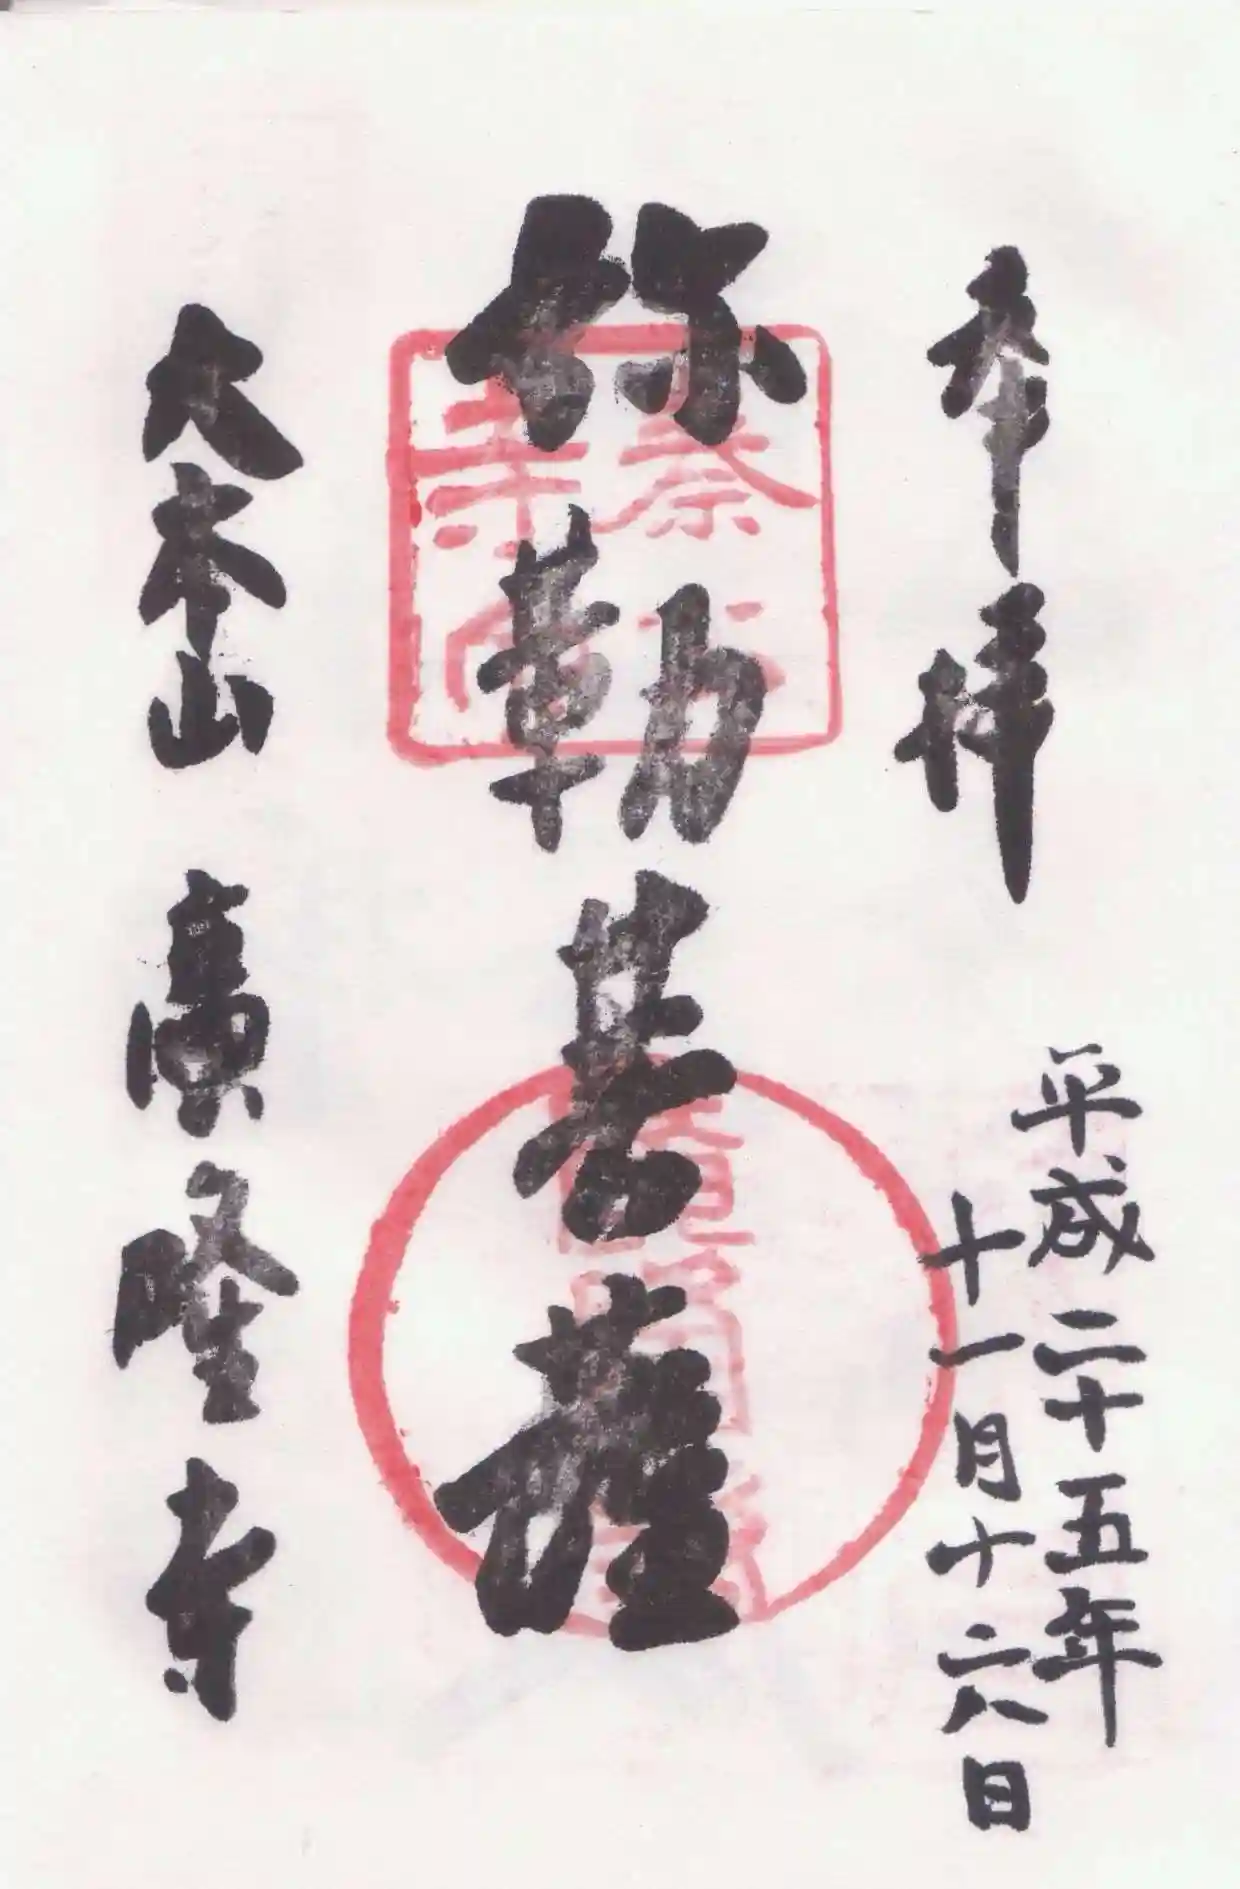 奉拝
平成二十五年
十一月十六日
弥勒菩薩
秦公
寺印
大本山 廣隆寺